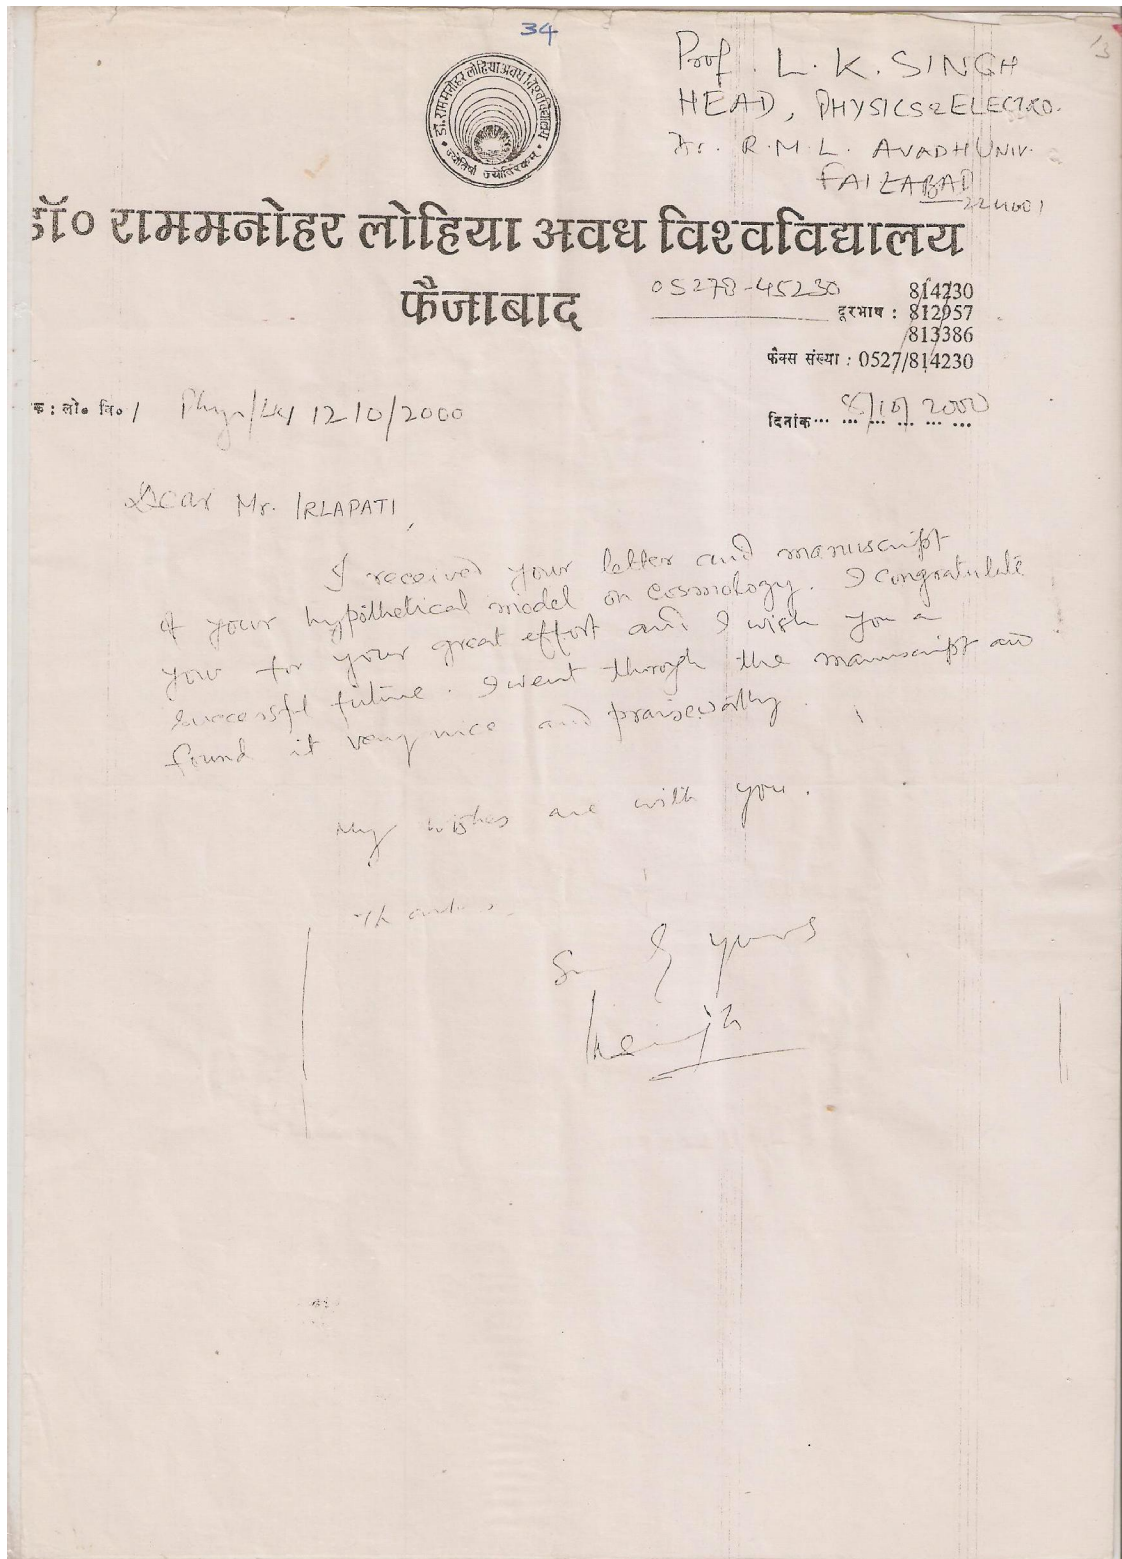 34
13
Prof. L. K. SINGH
HEAD, PHYSICS & ELECTRO.
Dr. R. M. L. AVADH UNIV.
FAIZABAD
224001
डॉ. राम मनोहर लोहिया अवध विश्वविद्यालय
डॉ० राममनोहर लोहिया अवध विश्वविद्यालय
फैजाबाद
05278-45230
814230
दूरभाष : 812957
813386
फैक्स संख्या : 0527/814230
क : लो० वि० /
1210/2000
दिनांक 8/10/2000
Dear Mr. IRLAPATI,
I received your letter and manuscript
of your hypothetical model on cosmology. I congratulate
you for your great effort and I wish you a
successful future. I went through the manuscript and
found it very nice and praiseworthy.
My wishes are with you.
yours